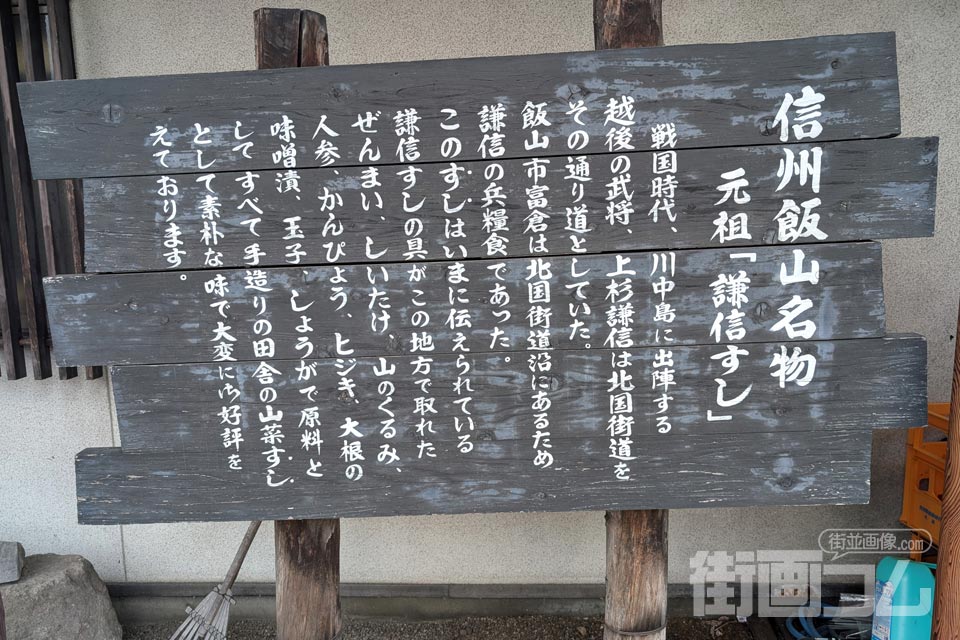 信州飯山名物
元祖「謙信すし」
戦国時代、川中島に出陣する
越後の武将、上杉謙信は北国街道を
その通り道としていた。
飯山市富倉は北国街道沿にあるため
謙信の兵糧食であった。
このすしはいまに伝えられている
謙信すしの具がこの地方で取れた
ぜんまい、しいたけ、山のくるみ、
人参、かんぴょう、ヒジキ、大根の
味噌漬、玉子、しょうがで原料と
してすべて手造りの田舎の山菜すし
として素朴な味で大変に御好評を
えております。
街並画像.com
街画コム